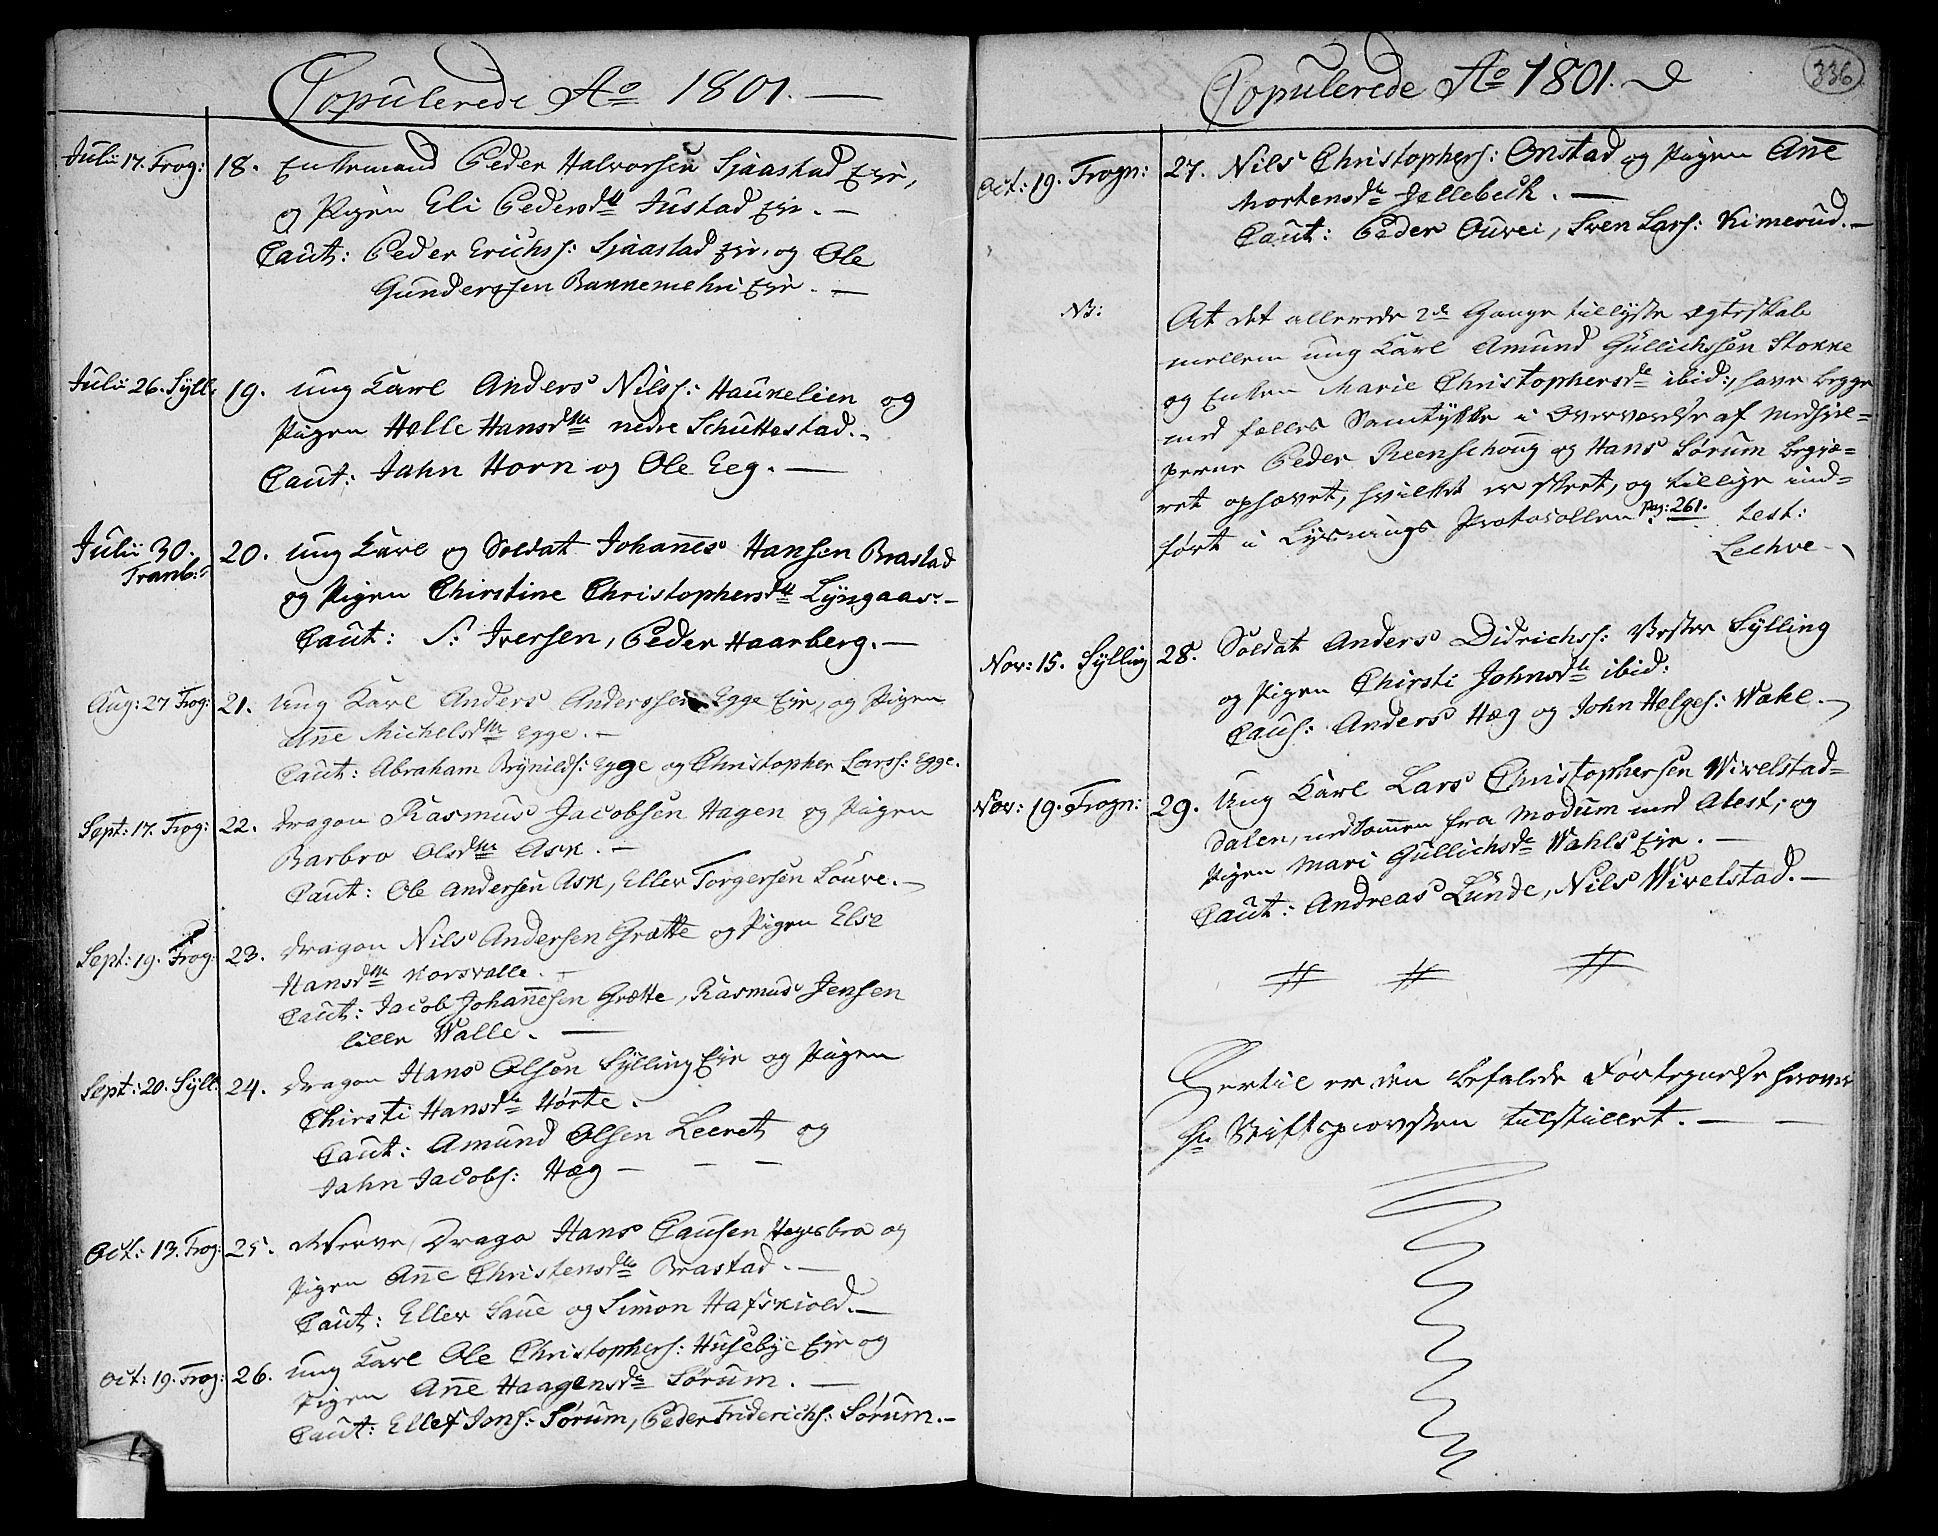 Copulerede Ao 1801. —
Julii 17. Frog: 18. Enkemand Peder Halvorsen Sjaastad Eje,
og Pigen Eli Pedersdtr Justad Eje. —
Caut: Peder Erichss: Sjaastad Eje, og Ole
Gunderssen Bannemehri Eje. —
Julii 26. Syll: 19. ung Karl Anders Nilss: Haukelien og
Pigen Helle Hansdtr nedre Schuttestad. -
Caut: Jahn Horn og Ole Eeg. —
Julii 30. 20. ung Karl og Soldat Johannes Hansen Brastad
Tranb: og Pigen Chirstine Christophersdtr Lyngaas. -
Caut: S: Iversen, Peder Haarberg. —
Aug: 27 Frog: 21. Ung Karl Anders Anderssen Egge Eje, og Pigen
Anne Michelsdtr Egge. -
Caut: Abraham Brynilds: Egge og Christopher Larss: Egge.
Sept: 17. Frog: 22. Dragon Rasmus Jacobsen Hagen og Pigen
Barbro Olsdtr Ask. -
Caut: Ole Andersen Ask, Ellev Torgersen Louve. -
Sept: 19. Frog: 23. Dragon Nils Andersen Grætte og Pigen Else
Hansdtr Korsvalle. -
Caut: Jacob Johannesen Grætte, Rasmus Jensen
lille Walle. —
Sept: 20. Syll: 24. Dragon Hans Olsen Sylling Eje og Pigen
Chirsti Hansdtr Hørte.
Caut: Amund Olsen Leeret og
Jahn Jacobs: Hæg — — —
Oct: 13. Frog: 25. Reserve Drago Hans Pausen Hegsbro og
Pigen Anne Christensdtr Brastad. —
Caut: Ellev Saue og Simon Hafskiold. —
Oct: 19. Frog: 26. ung Karl Ole Christophers: Husebye Eje og
Pigen Anne Haagensdtr Sørum. —
Caut: Ellef Jons: Sørum, Peder Friderichs: Sørum. -
Copulerede Ao 1801.
336
Oct: 19. Frogn: 27. Nils Christophers: Onstad og Pigen Ane
Mortensdtr Jellebech. —
Caut: Peder Ouvei, Sven Lars: Kimerud. —
NB: At det allerede 2de Gange tillyste Ægteskab
mellem ung Karl Amund Gullichssen Stokke
og Enken Marie Christophersdtr ibid:, have begge
med fælles Samtykke i Overværelse af Medhjel-
perne Peder Reenschoug og Hans Sørum begjæ-
ret ophævet, hvilket er skeet, og tillige ind-
ført i Lysnings Protocollen Pag: 261. test:
Leehve -
Nov: 15. Sylling 28. Soldat Anders Didrichss: Vester Sylling
og Pigen Chirsti Johnsdtr ibid:
Caut: Anders Hæg og John Helges: Wahe. -
Nov: 19. Frogn: 29. Ung Karl Lars Christophersen Wivelstad-
dalen, nedkommen fra Modum med Atest, og
Pigen Mari Gullichsdtr Wahls Eje. —
Caut: Andreas Lunde, Nils Wivelstad. —
Hertil er den befalede Fortegnelse
Hr Stiftsprovsten tilstillet. — —